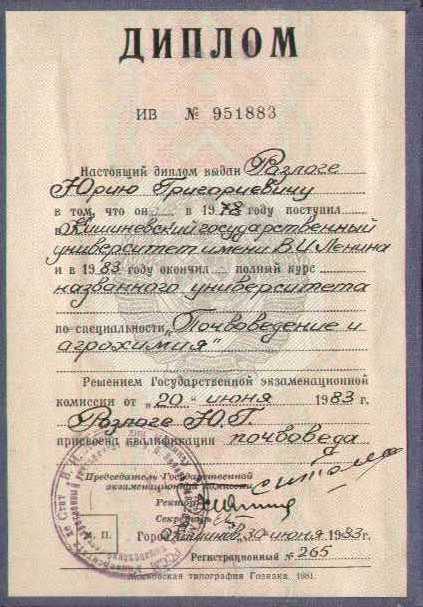 ДИПЛОМ
ИВ № 951883
Настоящий диплом выдан Разлоге
Юрию Григориевичу
в том, что он в 1978 году поступил
в Кишиневский государственный
университет имени В.И. Ленина
и в 1983 году окончил полный курс
названного университета
по специальности „Почвоведение и
агрохимия"
Решением Государственной экзаменационной
комиссии от „20" июня 1983 г.
Разлоге Ю.Г.
присвоена квалификация почвоведа
Председатель Государственной
экзаменационной комиссии
Ректор
Секретарь
М. П.
Город Кишинов, 30 июня 1983г.
Регистрационный № 265
Московская типография Гознака. 1981.